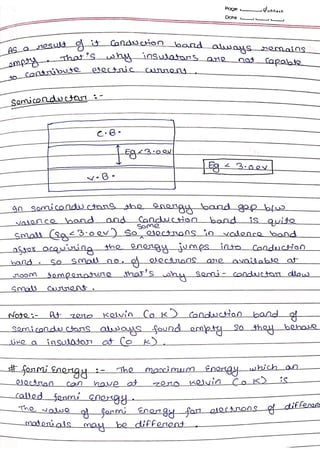 Page
Date
As a result of it conduction band always remains
empty. That's why insulators are not capable
to contribute electric current.
Semiconductor :-
C.B.
Eg<3.0ev
Eg < 3.0ev
V.B.
In semiconductors the energy band gap b/w
valence band and conduction band is quite
small (Eg<3.0ev) So some electrons in valence band
after acquiring the energy jumps into conduction
band. So small no. of electrons are available at
room temperature that's why semi-conductor allow
small current.
Note:- At zero Kelvin (0 K) conduction band of
semiconductors always found empty so they behave
like a insulator at (0 K).
# fermi Energy :- The maximum Energy which an
electron can have at zero kelvin (0 K) is
called fermi energy.
The value of fermi Energy for electrons of different
materials may be different.